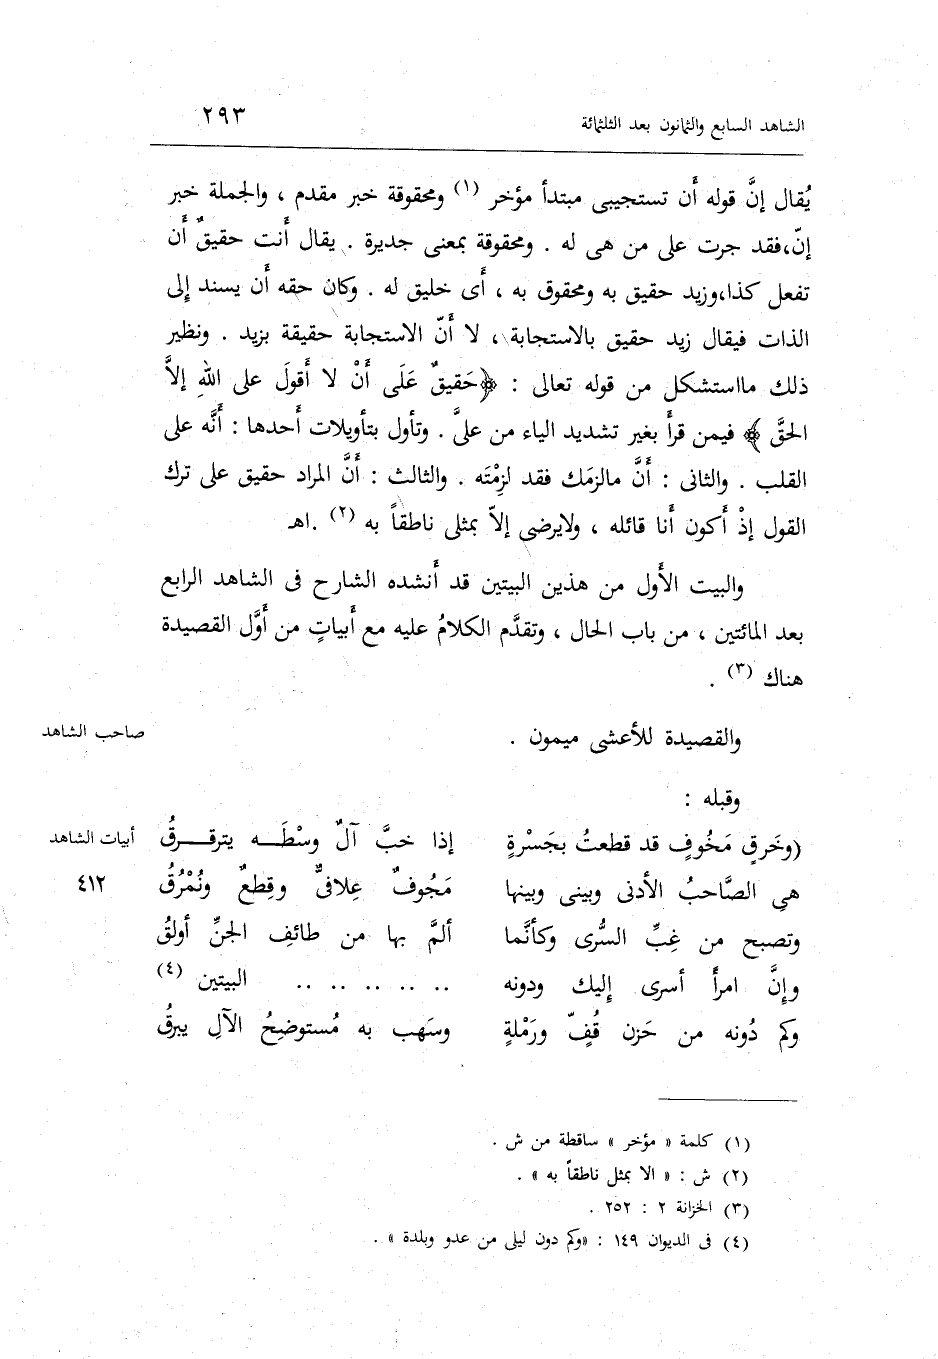 الشاهد السابع والثمانون بعد الثلثمائة ٢٩٣
يُقال إنَّ قوله أَن تستجيبى مبتدأ مؤخر (١) ومحقوقة خبر مقدم ، والجملة خبر
إنّ،فقد جرت على من هى له . ومحقوقة بمعنى جديرة . يقال أَنت حقيقٌ أَن
تفعل كذا،وزيد حقيق به ومحقوق به ، أَى خليق له . وكان حقه أَن يسند إِلى
الذات فيقال زيد حقيق بالاستجابة ، لا أَنّ الاستجابة حقيقة بزيد . ونظير
ذلك مااستشكل من قوله تعالى : ﴿حَقيقٌ عَلَى أَنْ لا أَقولَ على اللهِ إلاَّ
الحقَّ ﴾ فيمن قرأ بغير تشديد الياء من علىَّ . وتأول بتأويلات أَحدها : أَنَّه على
القلب . والثانى : أَنَّ مالزمَك فقد لزِمْتَه . والثالث : أَنَّ المراد حقيق على ترك
القول إذْ أَكون أَنا قائله ، ولايرضى إلاّ بمثلى ناطقاً به (٢) .اهـ
والبيت الأَول من هذين البيتين قد أَنشده الشارح فى الشاهد الرابع
بعد المائتين ، من باب الحال ، وتقدَّم الكلامُ عليه مع أَبياتٍ من أَوَّل القصيدة
هناك (٣) .
والقصيدة للأَعشى ميمون . صاحب الشاهد
وقبله :
(وخَرقٍ مَخُوفٍ قد قطعتُ بجَسْرةٍ إذا خبَّ آلٌ وسْطَـه يترقـرقُ أبيات الشاهد
هى الصَّاحبُ الأدنى وبينى وبينها مَجُوفٌ عِلافىٌّ وقِطعٌ ونُمْرُقُ ٤١٢
وتصبح من غِبِّ السُّرى وكأنَّما ألمَّ بها من طائفِ الجنِّ أولقُ
وإِنَّ امرأً أسرى إِليك ودونه .. .. .. .. .. البيتين (٤)
وكم دُونه من حَزن قُفٍّ ورَمْلةٍ وسَهب به مُستوضِحُ الآلِ يبرقُ
(١) كلمة « مؤخر » ساقطة من ش .
(٢) ش : « الا بمثل ناطقاً به » .
(٣) الخزانة ٢ : ٢٥٢ .
(٤) فى الديوان ١٤٩ : «وكم دون ليلى من عدو وبلدة » .